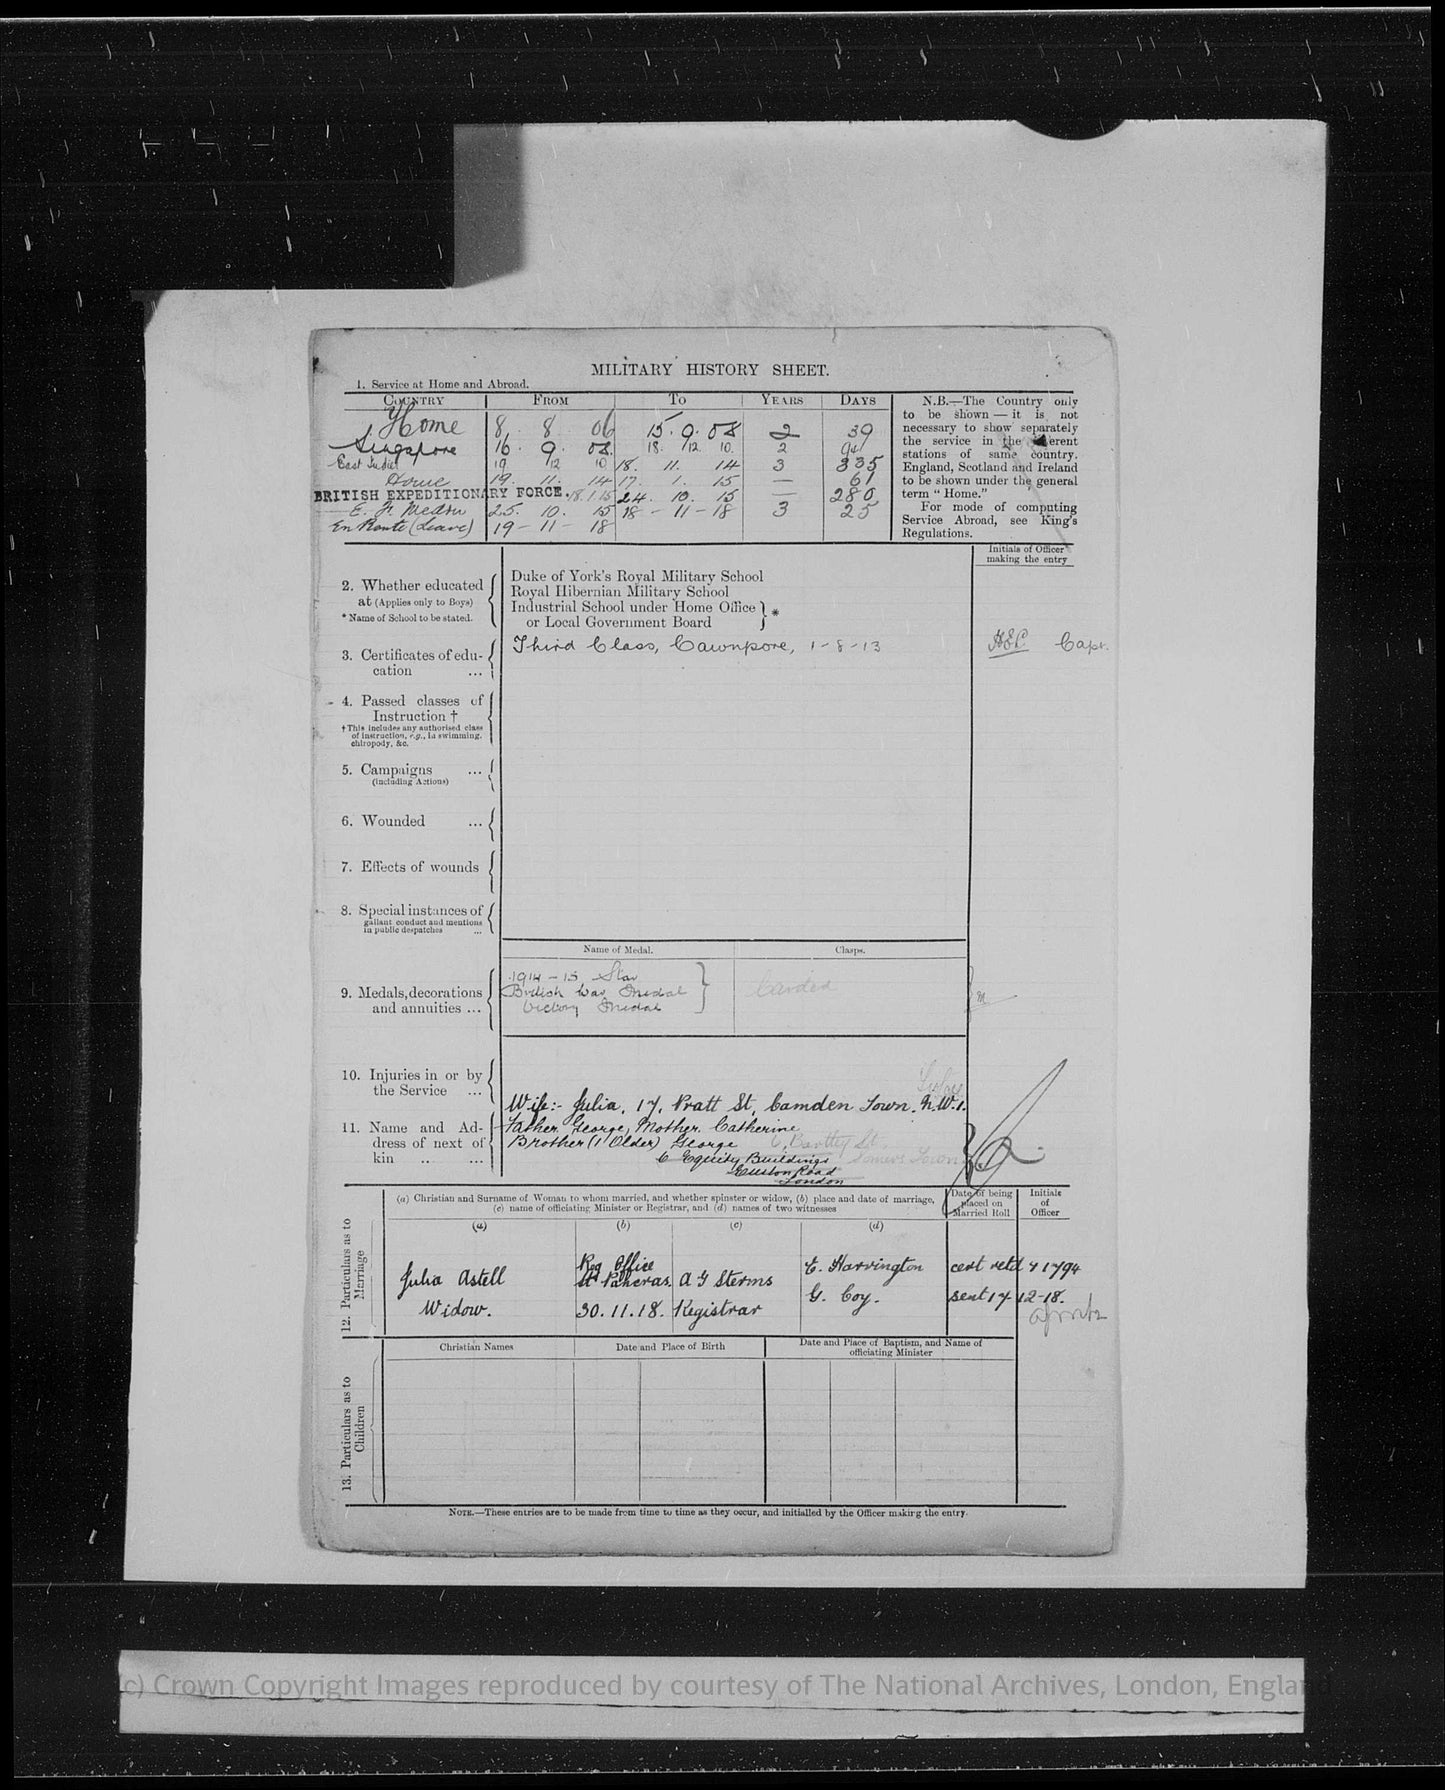 MILITARY HISTORY SHEET.
1. Service at Home and Abroad.
COUNTRY FROM TO YEARS DAYS
Home 8. 8 06 15. 9. 08 2 39
Singapore 16. 9. 08. 18. 12. 10. 2 94
East Indies 19 12 10 18. 11. 14 3 335
Home 19. 11. 14 17. 1. 15 — 61
BRITISH EXPEDITIONARY FORCE. 18.1.15 24. 10. 15 — 280
E. F. Medtn 25. 10. 15 18 - 11 - 18 3 25
En Route (Leave) 19 - 11 - 18
N.B.—The Country only
to be shown — it is not
necessary to show separately
the service in the different
stations of same country.
England, Scotland and Ireland
to be shown under the general
term “ Home.”
For mode of computing
Service Abroad, see King's
Regulations.
Initials of Officer
making the entry
2. Whether educated
at (Applies only to Boys)
* Name of School to be stated.
Duke of York's Royal Military School
Royal Hibernian Military School
Industrial School under Home Office
or Local Government Board } *
3. Certificates of edu-
cation ...
Third Class, Cawnpore, 1-8-13
Capt.
4. Passed classes of
Instruction †
† This includes any authorised class
of instruction, e.g., in swimming,
chiropody, &c.
5. Campaigns ...
(including Actions)
6. Wounded ...
7. Effects of wounds
8. Special instances of
gallant conduct and mentions
in public despatches ...
Name of Medal. Clasps.
9. Medals, decorations
and annuities ...
1914-15 Star
British War Medal
Victory Medal
Carded
10. Injuries in or by
the Service ...
11. Name and Ad-
dress of next of
kin .. ...
Wife:- Julia, 17, Pratt St, Camden Town. N.W.1.
Father George, Mother Catherine
Brother (1 Older) George
6, Bartly St.
Somers Town
6 Equity Buildings
Euston Road
London
12. Particulars as to
Marriage
(a) Christian and Surname of Woman to whom married, and whether spinster or widow, (b) place and date of marriage,
(c) name of officiating Minister or Registrar, and (d) names of two witnesses
Date of being
placed on
Married Roll
Initials
of
Officer
(a) (b) (c) (d)
Julia Astell
Widow.
Reg Office
St Pancras
30. 11. 18.
A G Sterms
Registrar
E. Harrington
G. Coy.
cert retd 41794
sent 17 12-18.
13. Particulars as to
Children
Christian Names
Date and Place of Birth
Date and Place of Baptism, and Name of
officiating Minister
NOTE.—These entries are to be made from time to time as they occur, and initialled by the Officer making the entry.
(c) Crown Copyright Images reproduced by courtesy of The National Archives, London, England